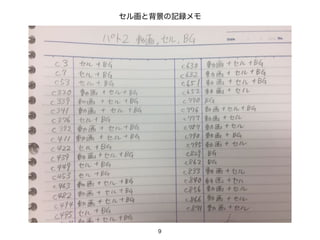 セル画と背景の記録メモ
パト2 動画,セル,BG
C3 セル+BG
C7 セル+BG
C53 セル+BG
C320 動画+セル+BG
C339 動画+セル+BG
C341 動画+セル+BG
C376 セル+BG
C392 動画+セル+BG
C411 動画+セル+BG
C422 セル+BG
C439 動画+セル+BG
C449 セル+BG
C453 セル+BG
C463 動画+セル+BG
C482 動画+セル+BG
C494 動画+セル+BG
C495 セル+BG
動画+セル+BG
C630 動画+セル+BG
C632 動画+セル+BG
C651 動画+セル+BG
C652 動画+セル
C770 BG
C776 動画+セル+BG
C777 動画+セル
動画+セル
動画+BG
動画+セル
BG
C863 BG
C833 動画+セル
C840 動画+セル
C856 動画+セル
C866 動画+セル
C891 動画+セル
9